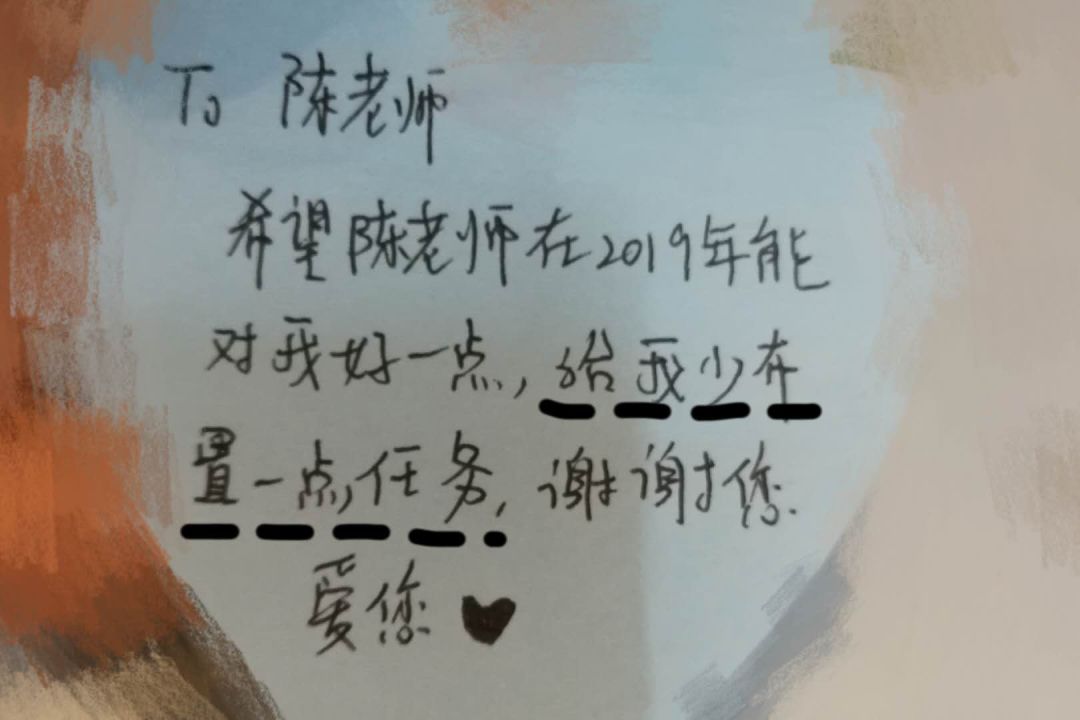 To 陈老师
希望陈老师在2019年能
对我好一点,给我少布
置一点任务,谢谢您.
爱您♥